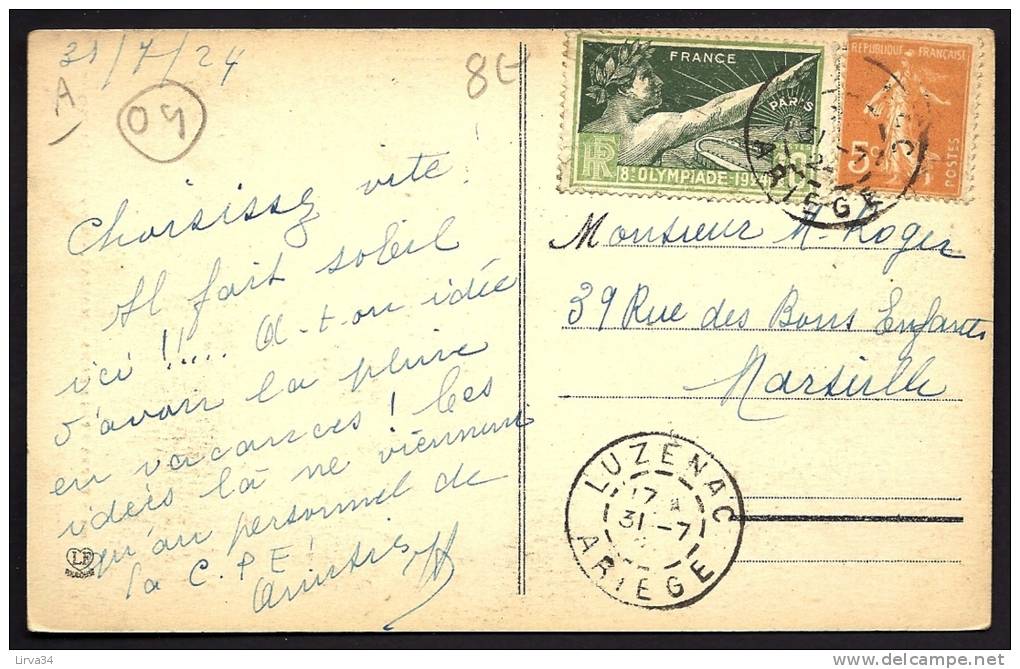 31/7/24
A
04
8E
Choisissez vite !
Il fait soleil
ici !!..... A-t-on idée
d'avoir la pluie
en vacances ! Ces
idées là ne viennent
qu'au personnel de
la C.P.E !
Amitiés
LF
TOULOUSE
FRANCE
PARIS
RF
8E OLYMPIADE-1924
REPUBLIQUE FRANÇAISE
5c
POSTES
31-7
ARIEGE
Monsieur M. Roger
39 Rue des Bons Enfants
Marseille
LUZENAC
17
31-7
ARIEGE
Lirva34
delcampe.net